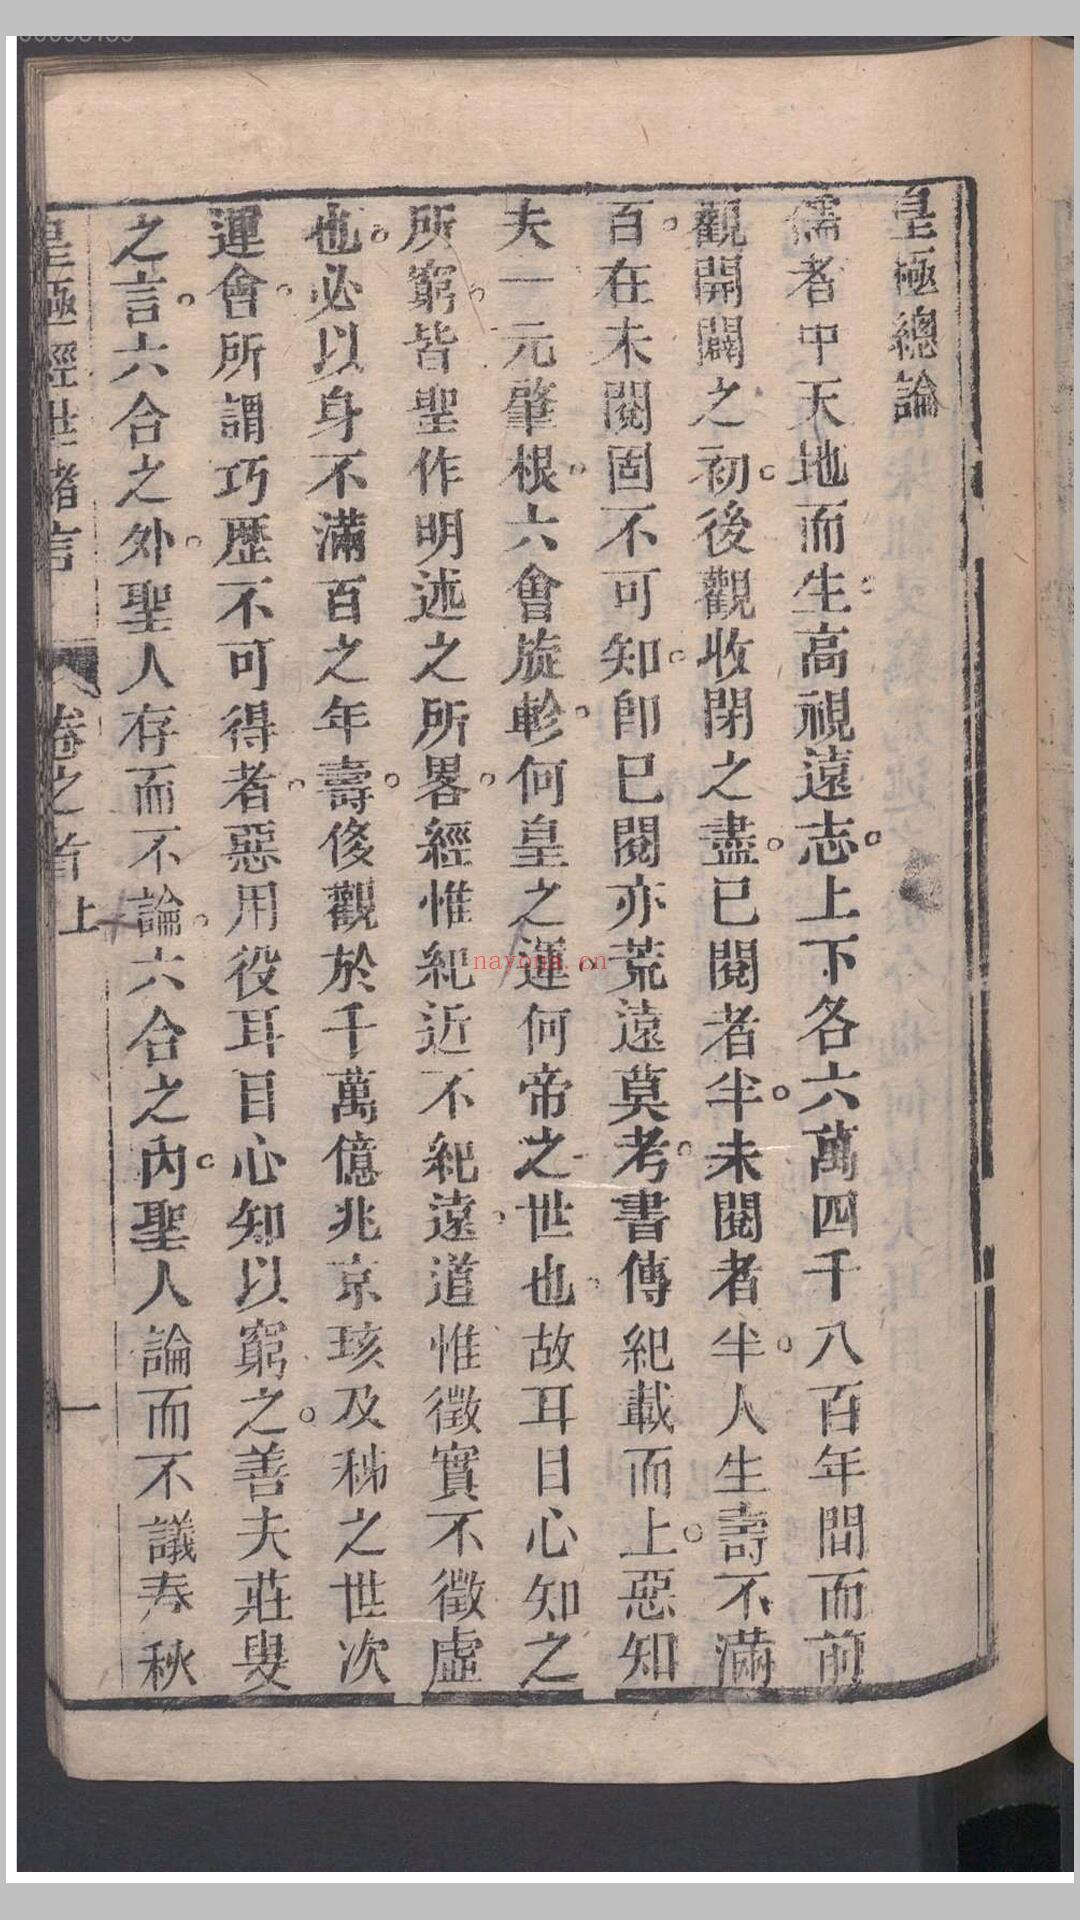 皇極總論
儒者中天地而生高視遠志上下各六萬四千八百年間而前
觀開闢之初後觀收閉之盡已閱者半未閱者半人生壽不滿
百在未閱固不可知卽已閱亦荒遠莫考書傳紀載而上惡知
夫一元肇根六會旋軫何皇之運何帝之世也故耳目心知之
所窮皆聖作明述之所畧經惟紀近不紀遠道惟徵實不徵虛
也必以身不滿百之年壽俊觀於千萬億兆京垓及秭之世次
運會所謂巧歷不可得者惡用役耳目心知以窮之善夫莊叟
之言六合之外聖人存而不論六合之內聖人論而不議春秋
皇極經世緒言 卷之首上 一
nayona.cn